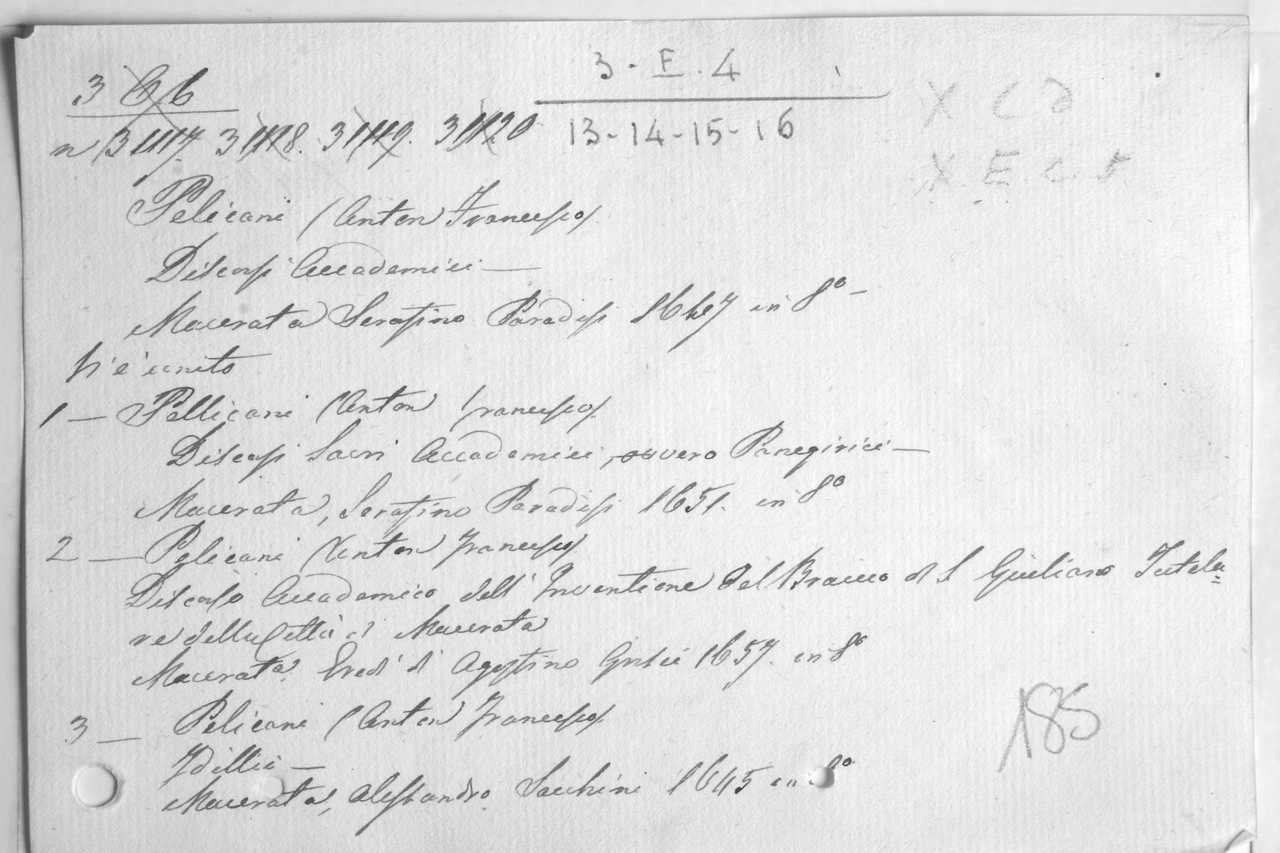 3 G 6
3 - E . 4
X C d
n 31117. 31118. 31119. 31120
13 - 14 - 15 - 16
X E c
Pelicani (Anton Francesco)
Discorsi Accademici —
Macerata Serafino Paradisi 1647 in 8º —
Vi è unito
1 — Pellicani (Anton Francesco)
Discorsi Sacri Accademici, ovvero Panegirici —
Macerata, Serafino Paradisi 1651. in 8º
2 — Pelicani (Anton Francesco)
Discorso Accademico dell' Inventione del Braccio di S Giuliano Tutela=
re della Città di Macerata
Macerata. Eredi di Agostino Grisei 1657. in 8º
3 — Pelicani (Anton Francesco)
Idillii —
Macerata, Alessandro Sacchini 1645 in 8º
185